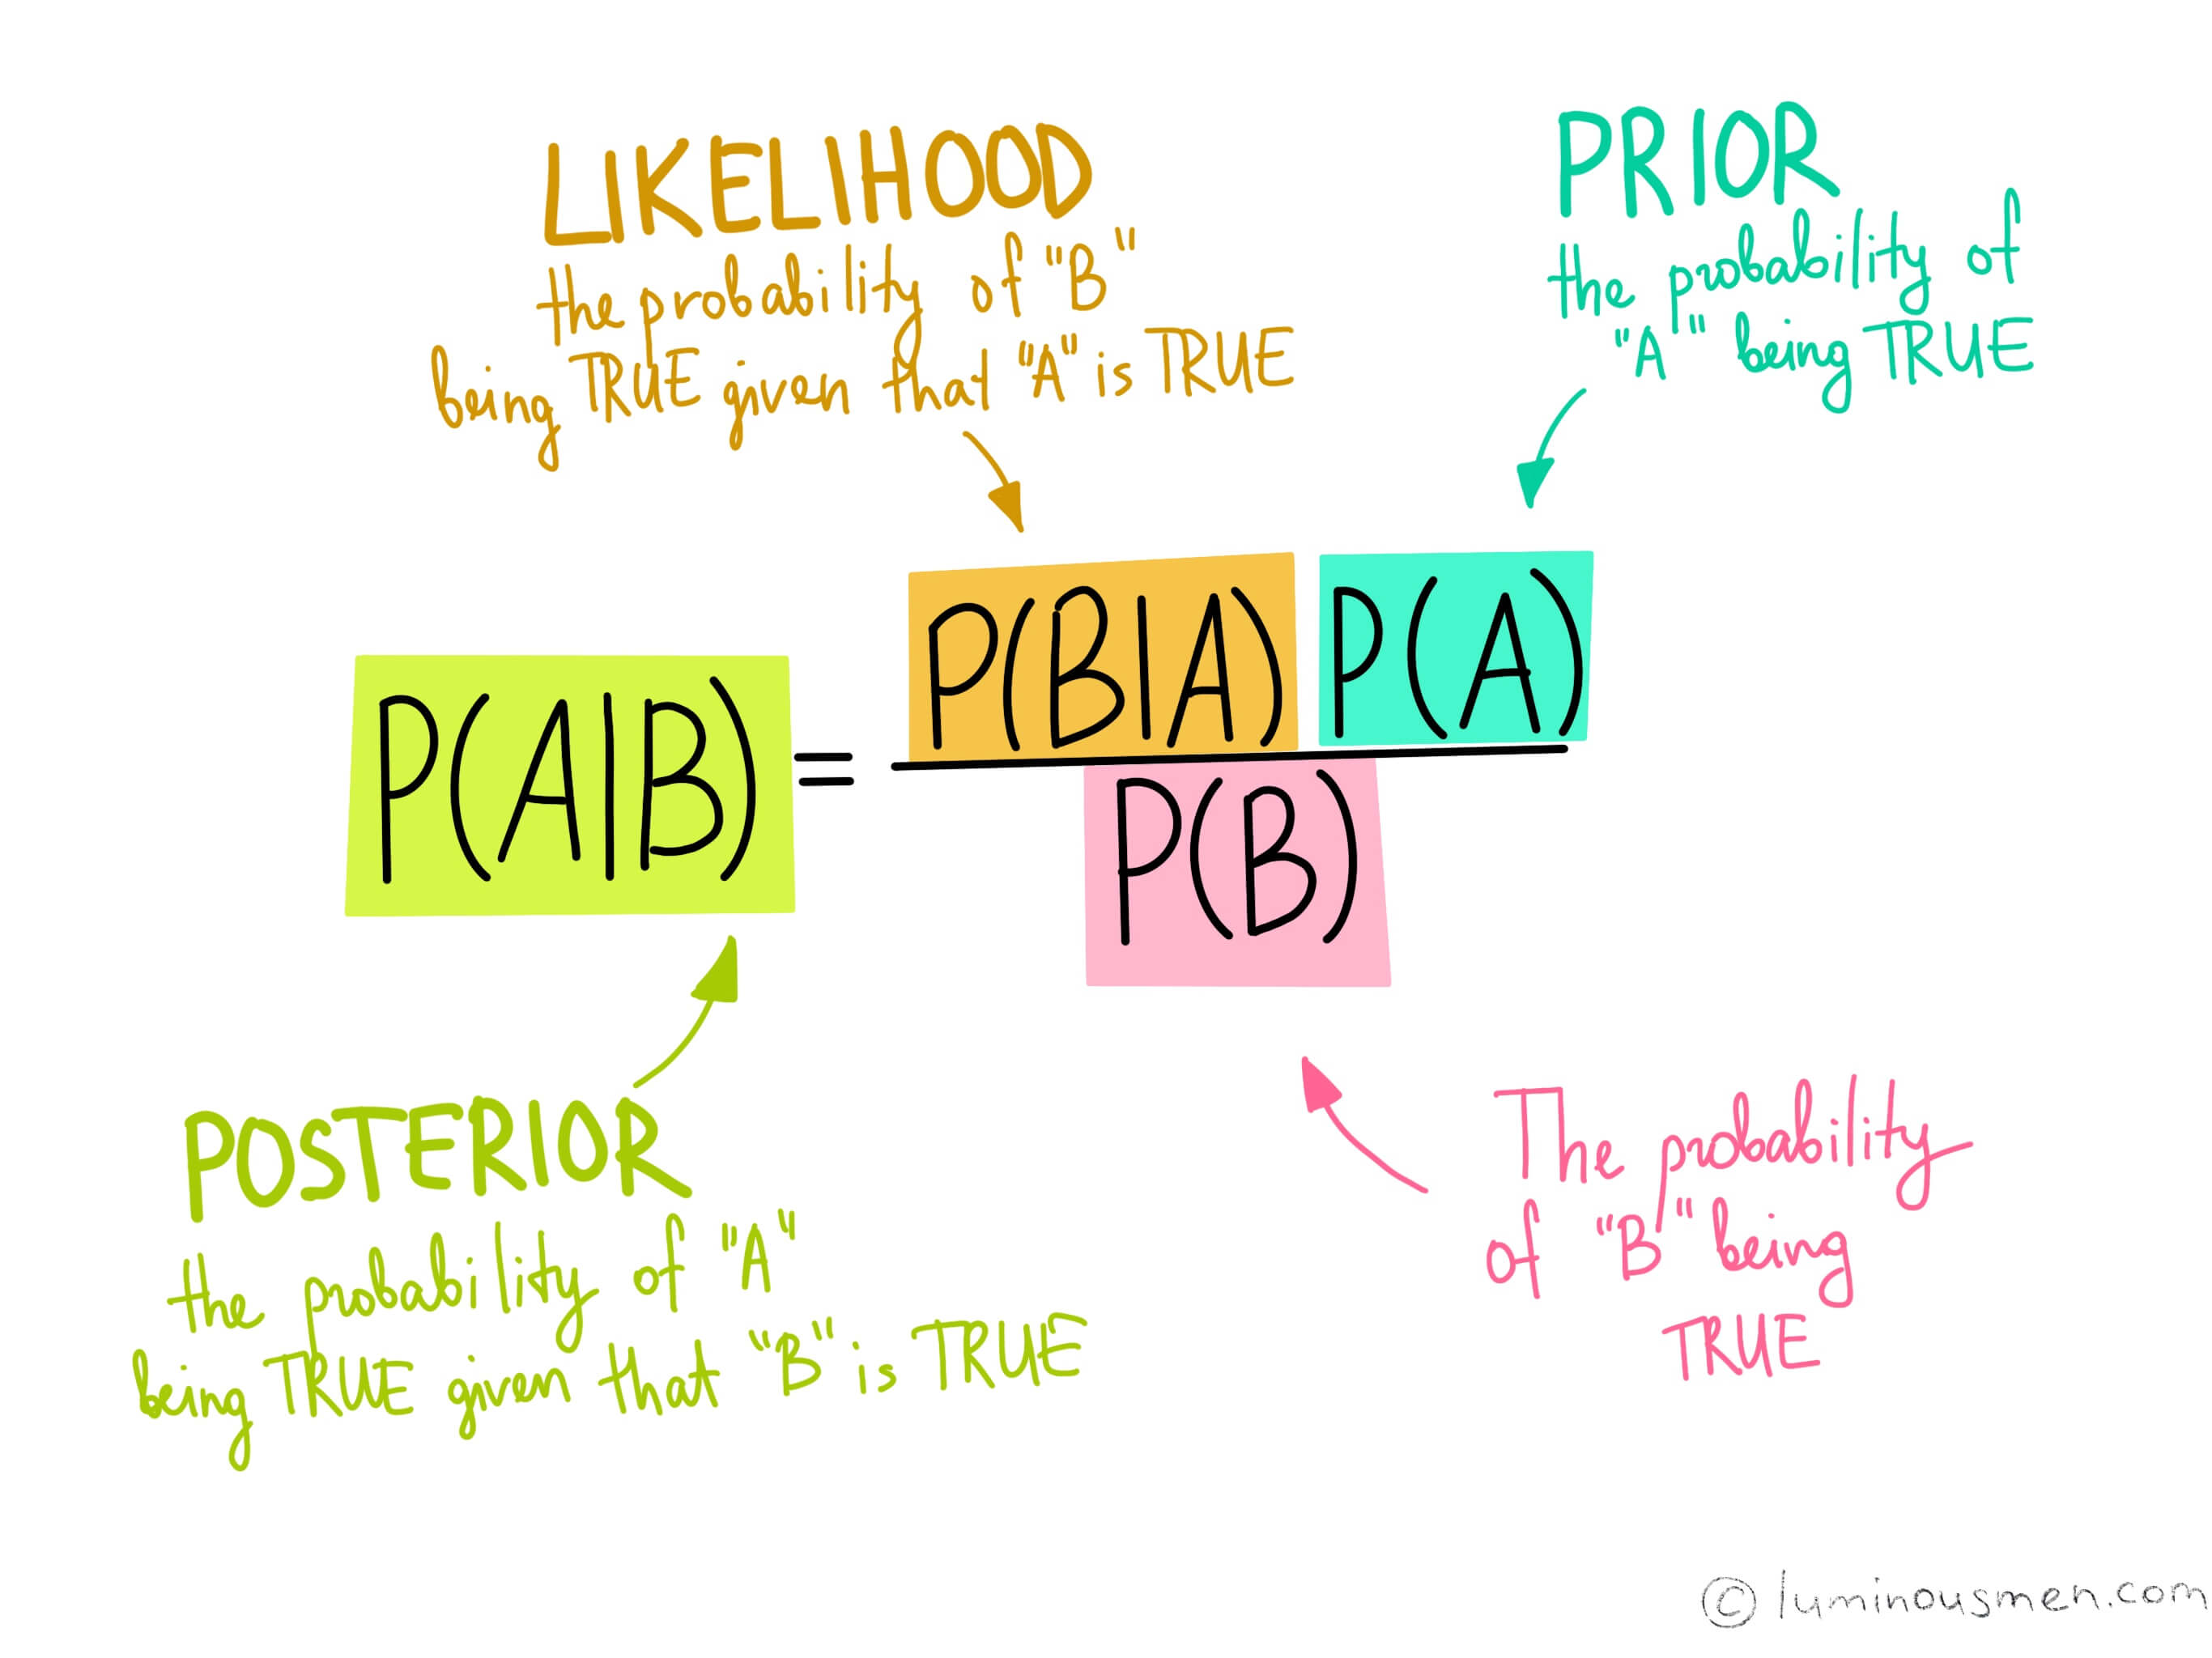 LIKELIHOOD
the probability of "B"
being TRUE given that "A" is TRUE
PRIOR
the probability of
"A" being TRUE
P(A|B) = P(B|A) P(A)
P(B)
POSTERIOR
the probability of "A"
being TRUE given that "B" is TRUE
The probability
of "B" being
TRUE
© luminousmen.com